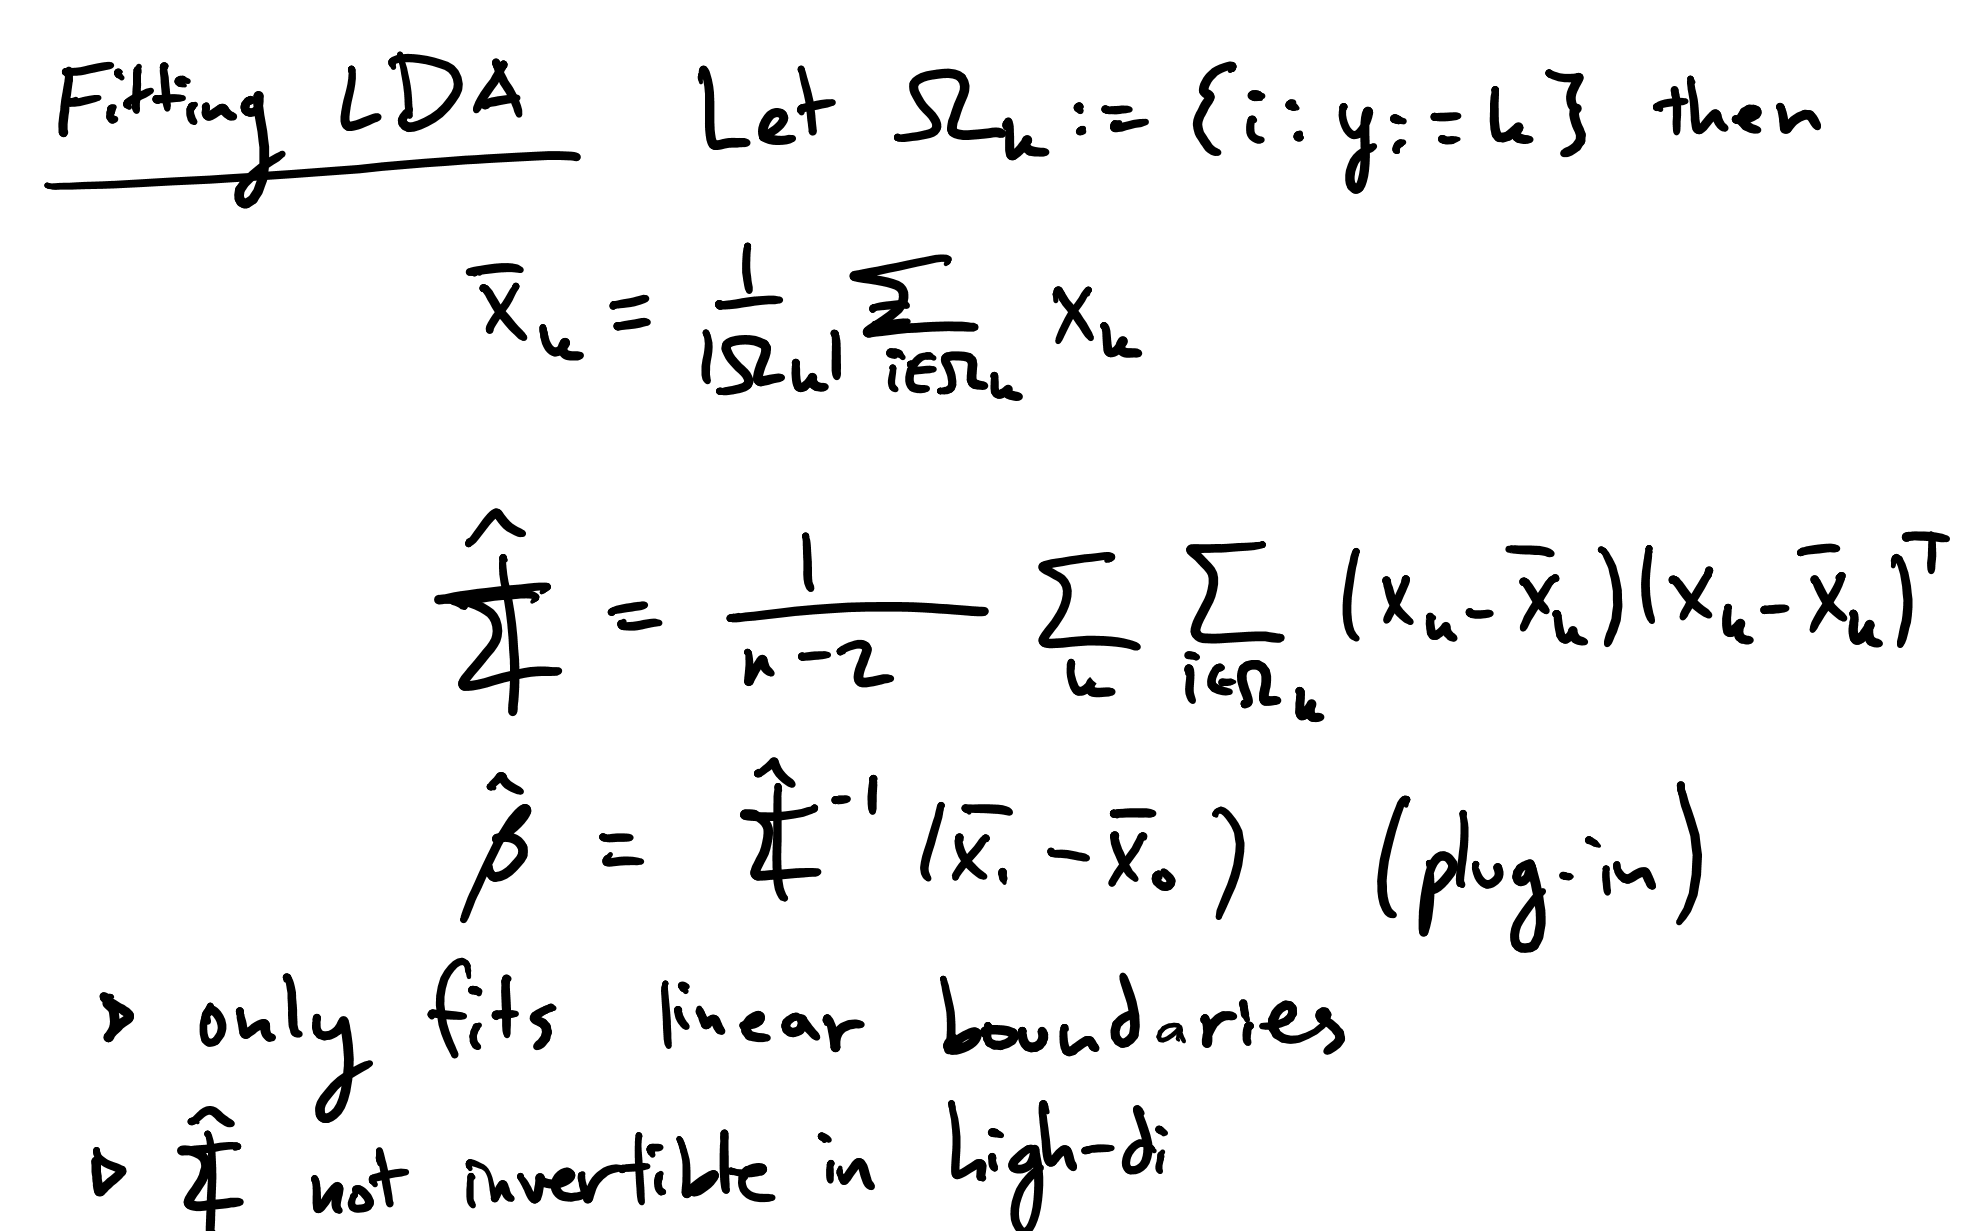 Fitting LDA Let Ωₖ := {i : yᵢ = k} then
x̄ₖ = 1/|Ωₖ| ∑_{i∈Ωₖ} xₖ
Σ̂ = 1/(n-2) ∑ₖ ∑_{i∈Ωₖ} (xₖ - x̄ₖ)(xₖ - x̄ₖ)ᵀ
β̂ = Σ̂⁻¹ (x̄₁ - x̄₀) (plug-in)
▷ only fits linear boundaries
▷ Σ̂ not invertible in high-di